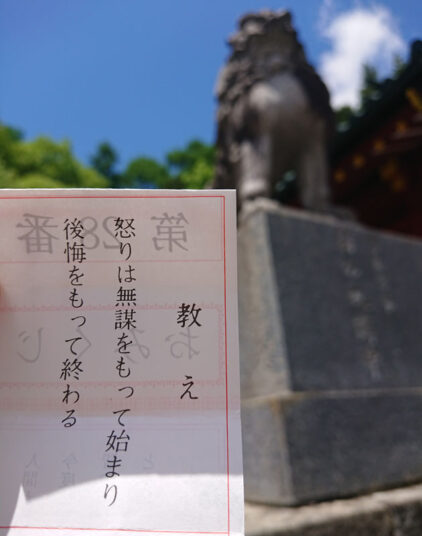 教え
怒りは無謀をもって始まり
後悔をもって終わる
第28番
おみくじ